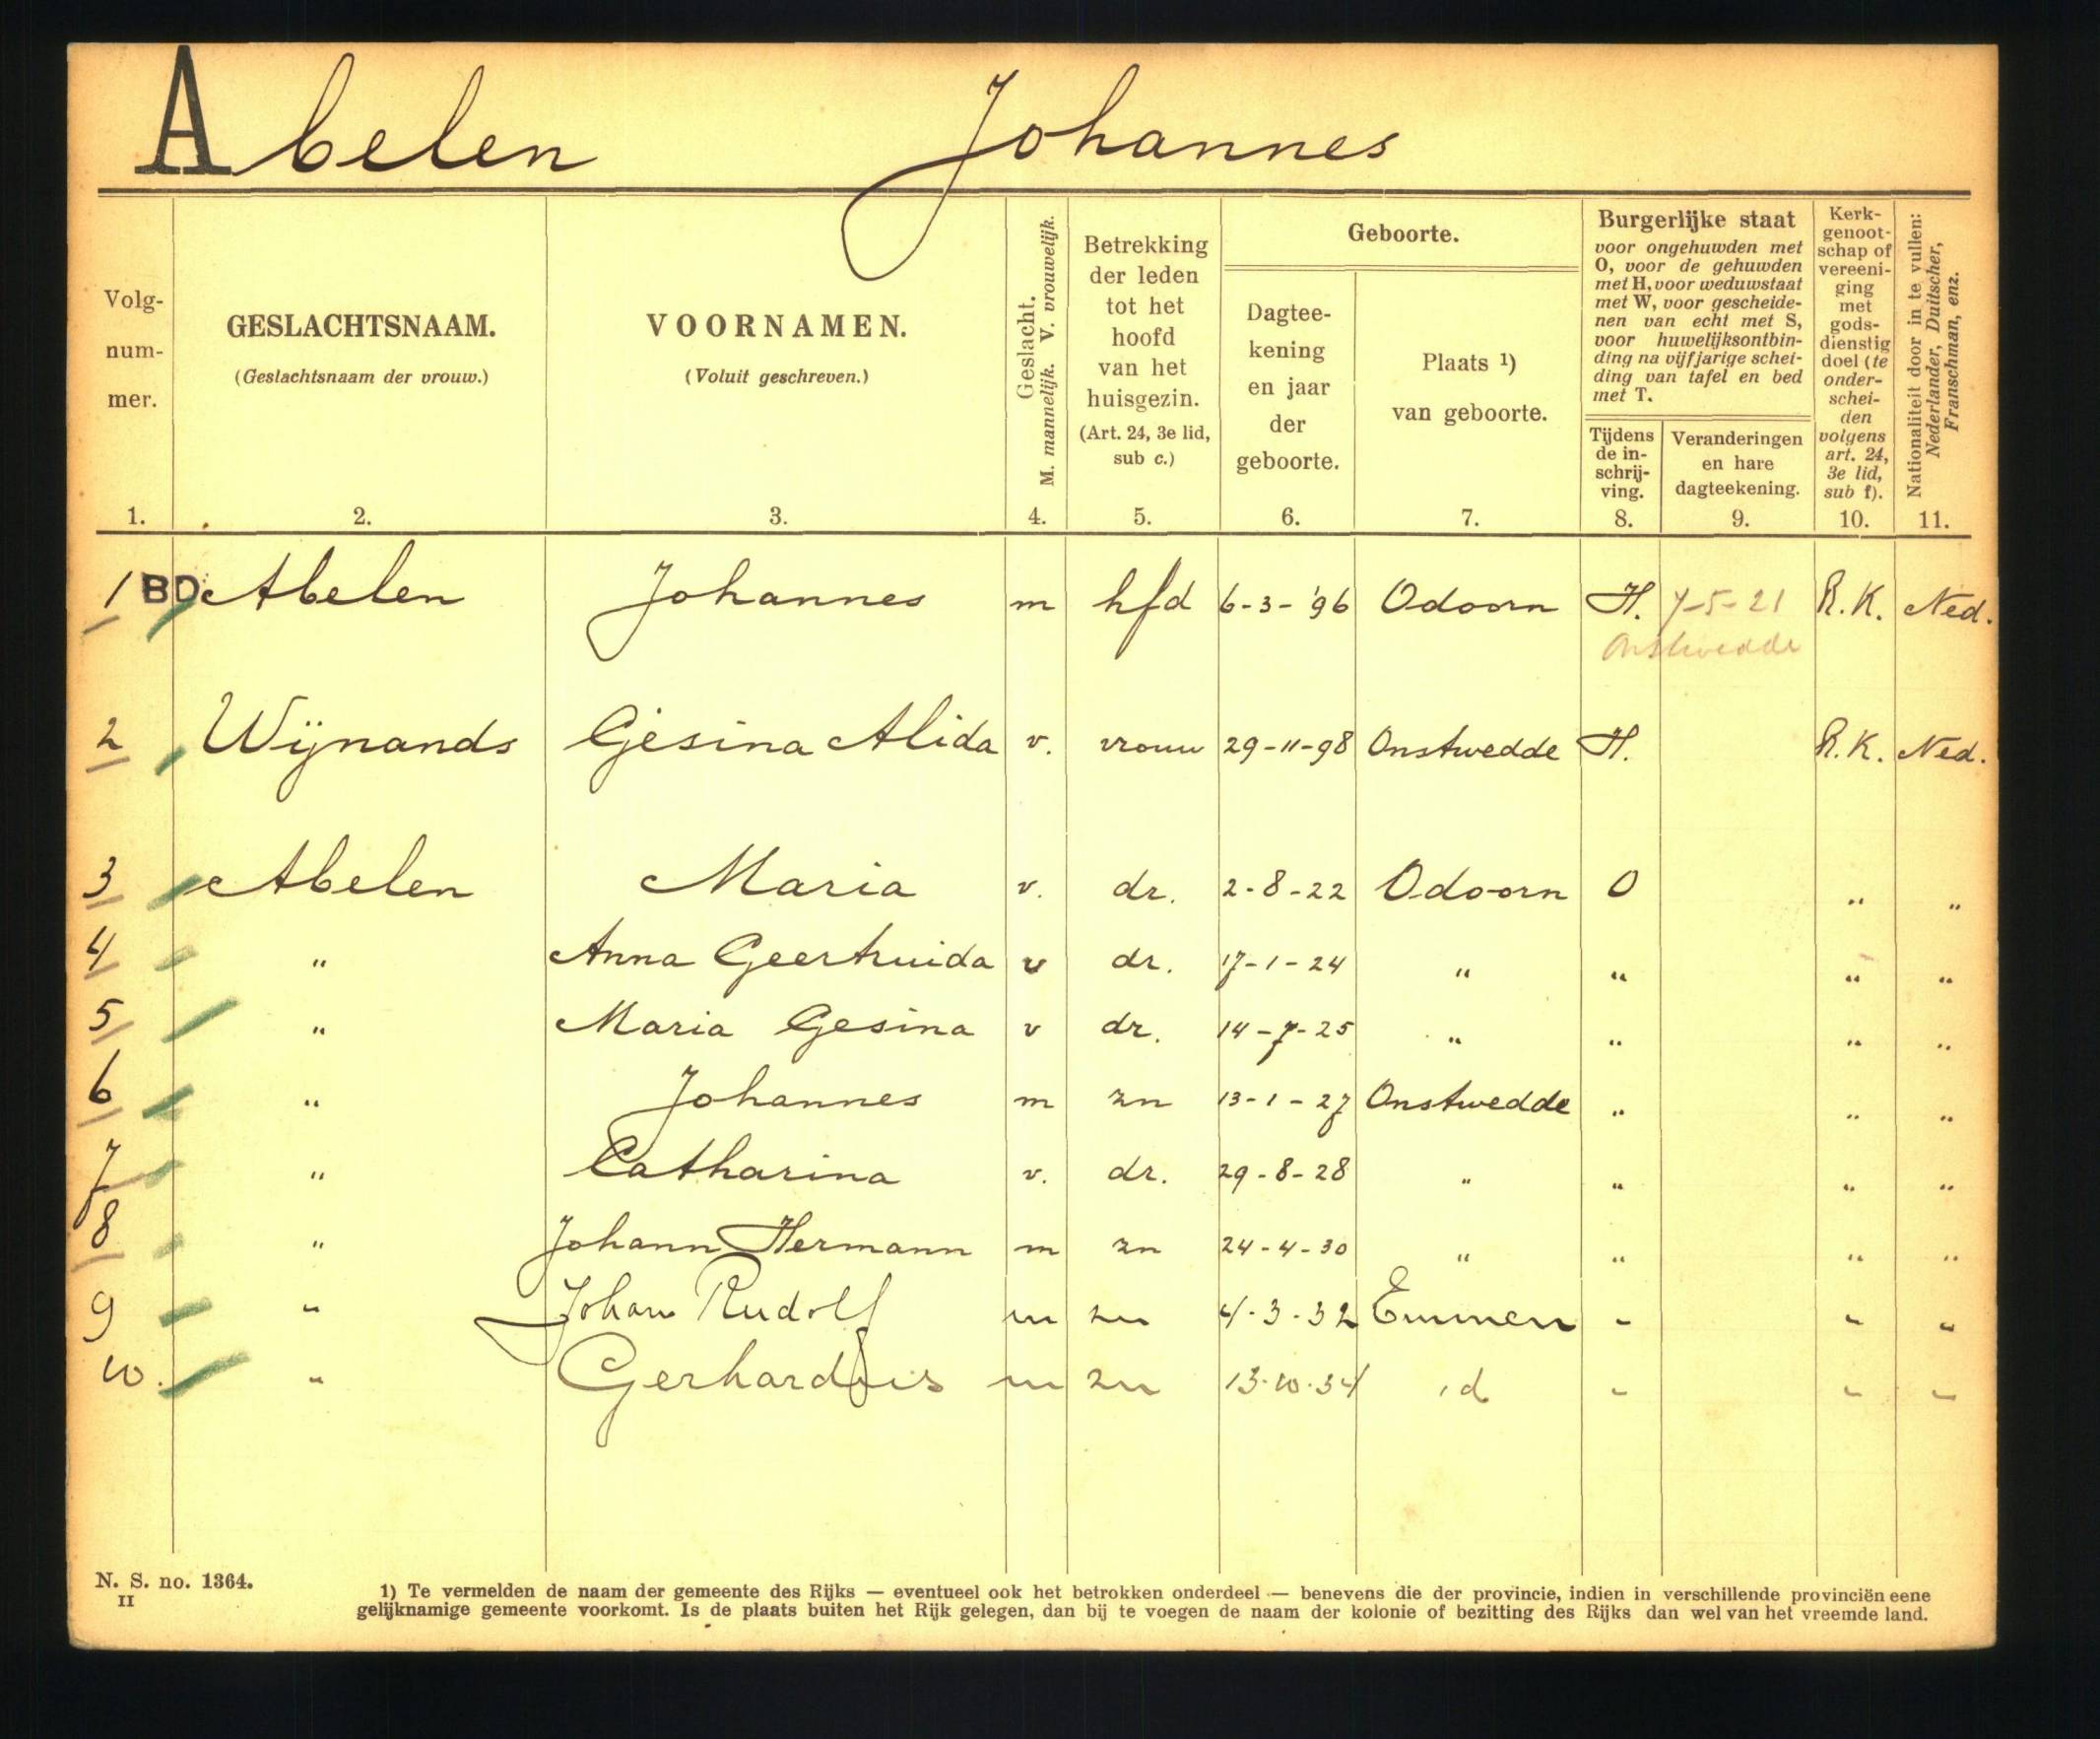 Abelen Johannes
Volg-
num-
mer.
1.
GESLACHTSNAAM.
(Geslachtsnaam der vrouw.)
2.
VOORNAMEN.
(Voluit geschreven.)
3.
Geslacht.
M. mannelijk. V. vrouwelijk.
4.
Betrekking
der leden
tot het
hoofd
van het
huisgezin.
(Art. 24, 3e lid,
sub c.)
5.
Geboorte.
Dagtee-
kening
en jaar
der
geboorte.
6.
Plaats 1)
van geboorte.
7.
Burgerlijke staat
voor ongehuwden met
O, voor de gehuwden
met H, voor weduwstaat
met W, voor gescheide-
nen van echt met S,
voor huwelijksontbin-
ding na vijfjarige schei-
ding van tafel en bed
met T.
Tijdens
de in-
schrij-
ving.
8.
Veranderingen
en hare
dagteekening.
9.
Kerk-
genoot-
schap of
vereeni-
ging
met
gods-
dienstig
doel (te
onder-
schei-
den
volgens
art. 24,
3e lid,
sub f).
10.
Nationaliteit door in te vullen:
Nederlander, Duitscher,
Franschman, enz.
11.
1 BD Abelen Johannes m hfd 6-3-'96 Odoorn H. 7-5-21 R.K. Ned.
Onstwedde
2 Wijnands Gesina Alida v. vrouw 29-11-98 Onstwedde H. R.K. Ned.
3 Abelen Maria v. dr. 2-8-22 Odoorn O " "
4 " Anna Geertruida v dr. 17-1-24 " " " "
5 " Maria Gesina v dr. 14-7-25 " " " "
6 " Johannes m zn 13-1-27 Onstwedde " " "
7 " Catharina v. dr. 29-8-28 " " " "
8 " Johann Hermann m zn 24-4-30 " " " "
9 " Johan Rudolf m zn 4-3-32 Emmen " " "
10. " Gerhardus m zn 13-10-34 id " " "
N. S. no. 1364.
II
1) Te vermelden de naam der gemeente des Rijks — eventueel ook het betrokken onderdeel — benevens die der provincie, indien in verschillende provinciën eene
gelijknamige gemeente voorkomt. Is de plaats buiten het Rijk gelegen, dan bij te voegen de naam der kolonie of bezitting des Rijks dan wel van het vreemde land.